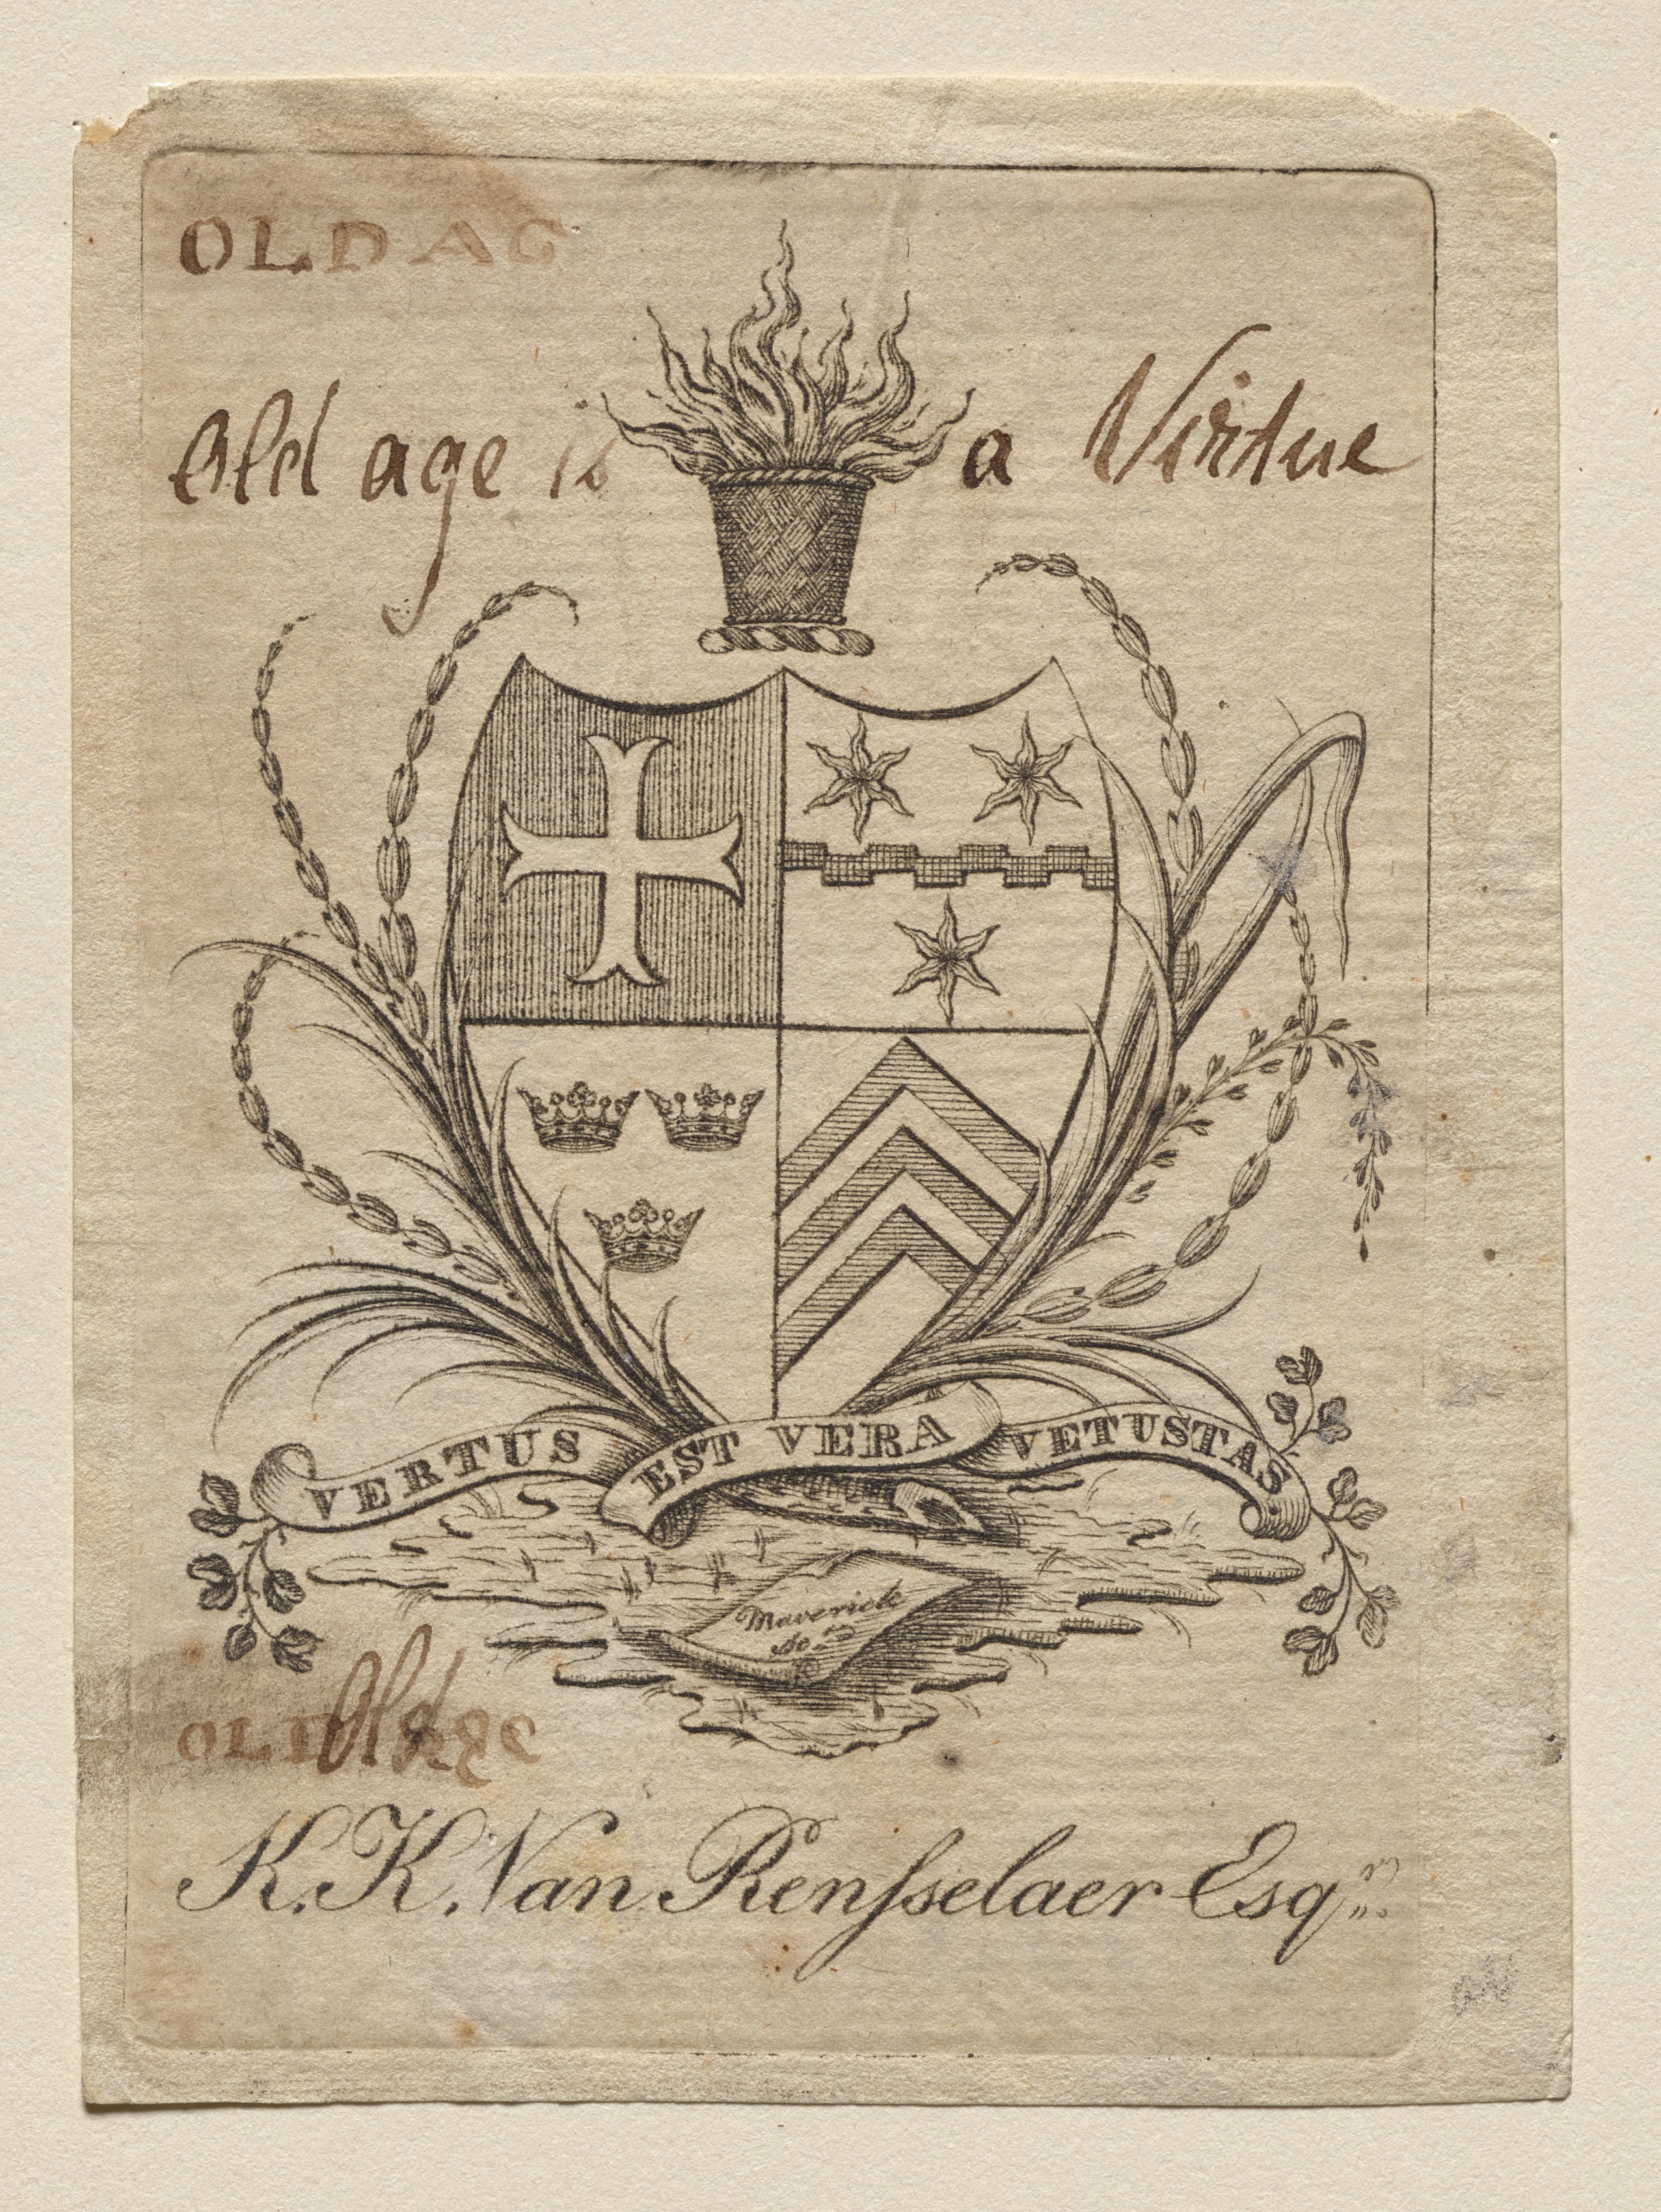 OLD AG
Old age is a Virtue
VERTUS EST VERA VETUSTAS
Maverick
Sc
OLD Old age
K. K. Van Renſselaer Esqr.